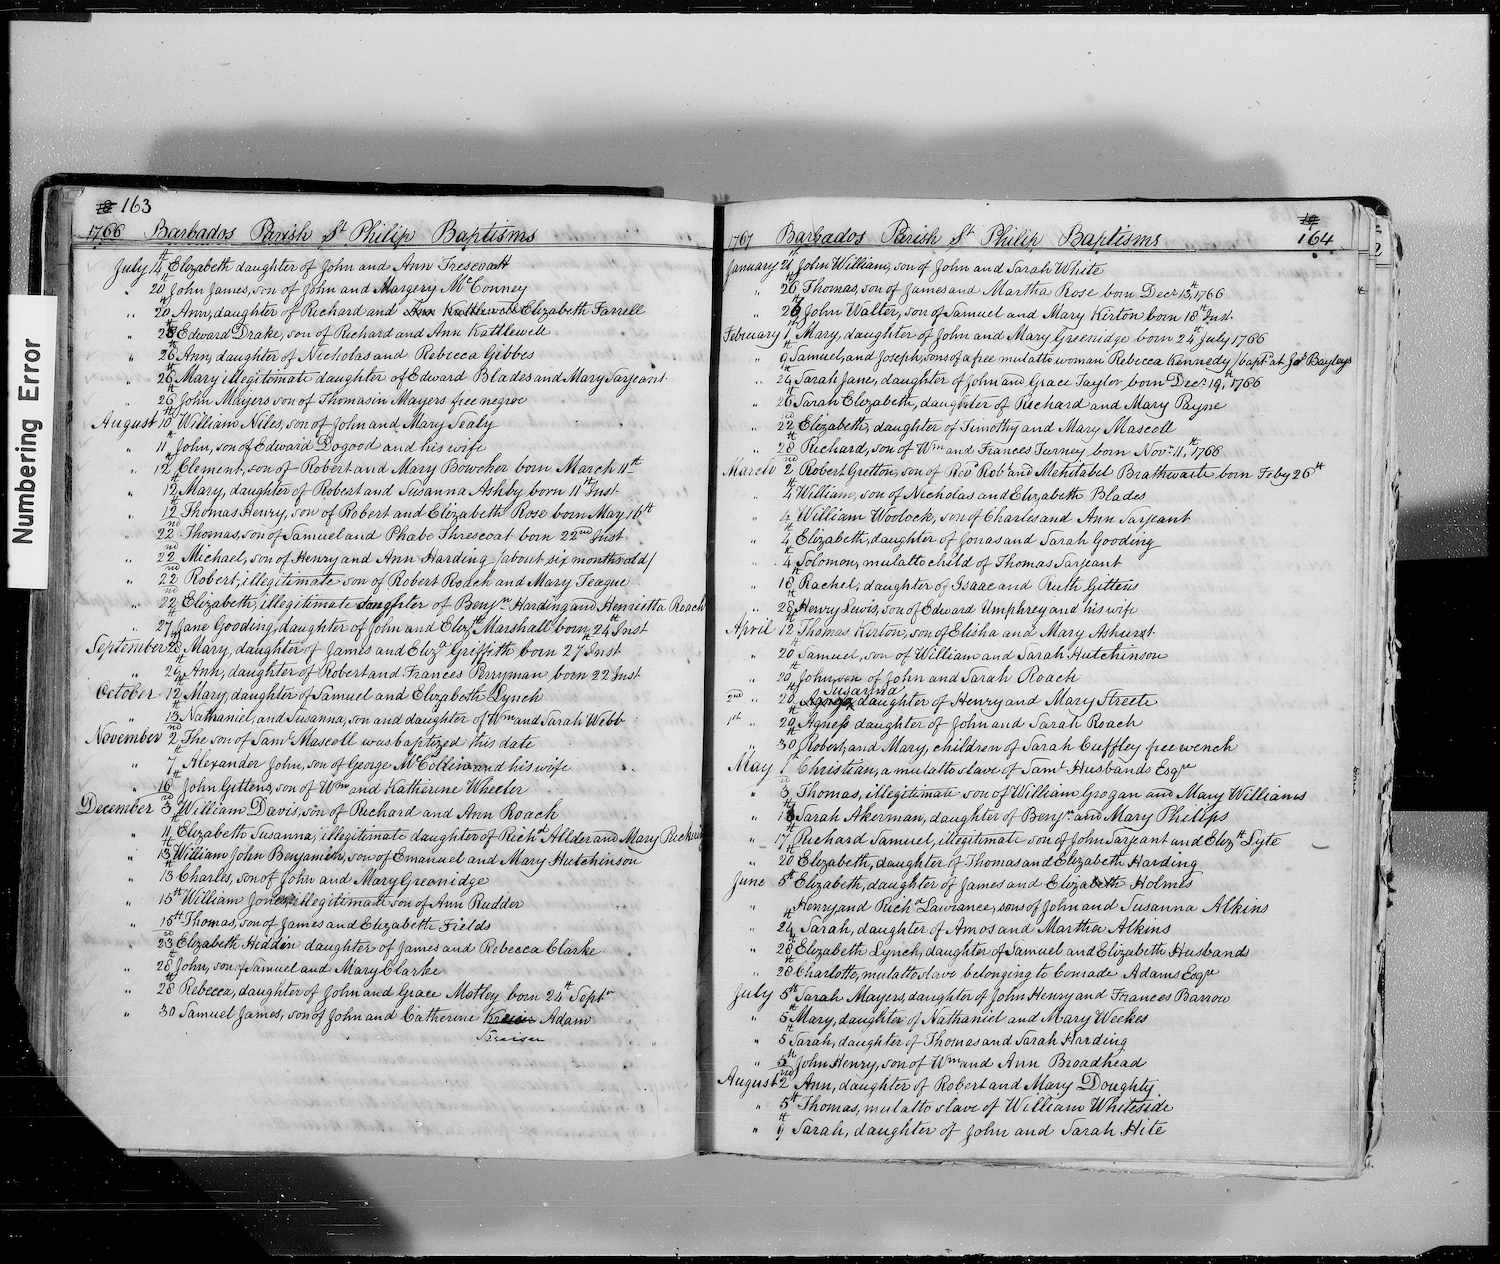 Numbering Error
163
1766 Barbados Parish St Philip Baptisms
July 14th Elizabeth daughter of John and Ann Trescoatt
" 20th John James, son of John and Margery McConney
" 20th Ann, daughter of Richard and Ann Kattlewell Elizabeth Farrell
" 28 Edward Drake, son of Richard and Ann Kattlewell
" 26th Ann, daughter of Nicholas and Rebecca Gibbes
" 26th Mary illegitimate daughter of Edward Blades and Mary Sarjeant
" 26th John Mayers son of Thomasin Mayers free negroe
August 10th William Niles, son of John and Mary Sealy
" 11th John, son of Edward Dogood and his wife
" 12th Clement, son of Robert and Mary Bowcher born March 11th
" 12th Mary, daughter of Robert and Susanna Ashby born 11th Inst
" 12th Thomas Henry, son of Robert and Elizabeth Rose born May 16th
" 22nd Thomas, son of Samuel and Phabe Threscoat born 22nd Inst
" 22nd Michael, son of Henry and Ann Harding /about six months old/
" 22nd Robert, illegitimate son of Robert Roach and Mary Teague
" 22nd Elizabeth, illegitimate daughter of Benjn Harding and Henrietta Roach
" 27th Jane Gooding, daughter of John and Elizth Marshall born 24th Inst
September 28th Mary, daughter of James and Eliza Griffith born 27th Inst
" 26th Ann, daughter of Robert and Frances Perryman born 22 Inst
October 12th Mary, daughter of Samuel and Elizabeth Lynch
" 13th Nathaniel, and Susanna, son and daughter of Wm and Sarah Webb
November 2nd The son of Saml Mascoll was baptized this date
" 7th Alexander John, son of George McCollin and his wife
" 16th John Gittens, son of Wm and Katherine Wheeler
December 3rd William Davis, son of Richard and Ann Roach
" 11th Elizabeth Susanna, illegitimate daughter of Richd Allder and Mary
" 13th William John Benjamin, son of Emanuel and Mary Hutchinson
" 13 Charles, son of John and Mary Greenidge
" 15th William Jones illegitimate son of Ann Rudder
" 15th Thomas, son of James and Elizabeth Fields
" 23rd Elizabeth Hiddin daughter of James and Rebecca Clarke
" 28th John, son of Samuel and Mary Clarke
" 28th Rebecca, daughter of John and Grace Motley born 24th Septr
" 30 Samuel James, son of John and Catherine Adam
164
1767 Barbados Parish St Philip Baptisms
January 21th John William, son of John and Sarah White
" 26th Thomas, son of James and Martha Rose born Decr 13th, 1766
" 26 John Walter, son of Samuel and Mary Kirton born 18th Inst
February 1st Mary, daughter of John and Mary Greenidge born 24th July 1766
" 9th Samuel, and Joseph, sons of a free mulatto woman Rebecca Kennedy /bapt at Jos Bayleys
" 24 Sarah Jane, daughter of John and Grace Taylor born Decr 19th, 1766
" 26th Sarah Elizabeth, daughter of Richard and Mary Payne
" 22nd Elizabeth, daughter of Timothy and Mary Mascoll
" 28th Richard, son of Wm and Frances Turney born Novr 11th, 1766
March 2nd Robert Gretton, son of Revd Robt and Mehitabel Brathwaite born Feby 26th
" 4th William, son of Nicholas and Elizabeth Blades
" 4 William Woolock, son of Charles and Ann Sarjeant
" 4th Elizabeth, daughter of Jonas and Sarah Gooding
" 4th Solomon, mulatto child of Thomas Sarjeant
" 18th Rachel, daughter of Isaac and Ruth Gittens
" 28th Henry Lewis, son of Edward Umphrey and his wife
April 12th Thomas Kirton, son of Elisha and Mary Ashurst
" 20 Samuel, son of William and Sarah Hutchinson
" 20th John, son of John and Sarah Roach
2nd " 20th Agness Susanna daughter of Henry and Mary Streete
1st " 20 Agness daughter of John and Sarah Roach
" 30th Robert, and Mary, children of Sarah Cuffley free wench
May 1st Christian, a mulatto slave of Saml Husbands Esqr
" 3rd Thomas, illegitimate son of William Grogan and Mary Williams
" 13 Sarah Akerman, daughter of Benjn and Mary Phelips
" 17th Richard Samuel, illegitimate son of John Sarjeant and Elizth Lyte
" 20th Elizabeth, daughter of Thomas and Elizabeth Harding
June 5th Elizabeth, daughter of James and Elizabeth Holmes
" Henry and Richd Lawrance, sons of John and Susanna Alkins
" 24th Sarah, daughter of Amos and Martha Alkins
" 28th Elizabeth Lynch, daughter of Samuel and Elizabeth Husbands
" 28th Charlotte, mulatto slave belonging to Conrade Adams Esqr
July 5th Sarah Mayers, daughter of John Henry and Frances Barrow
" 5th Mary, daughter of Nathaniel and Mary Weekes
" 5th Sarah, daughter of Thomas and Sarah Harding
" 5th John Henry, son of Wm and Ann Broadhead
August 2nd Ann, daughter of Robert and Mary Doughty
" 5th Thomas, mulatto slave of William Whiteside
" 9th Sarah, daughter of John and Sarah Hite